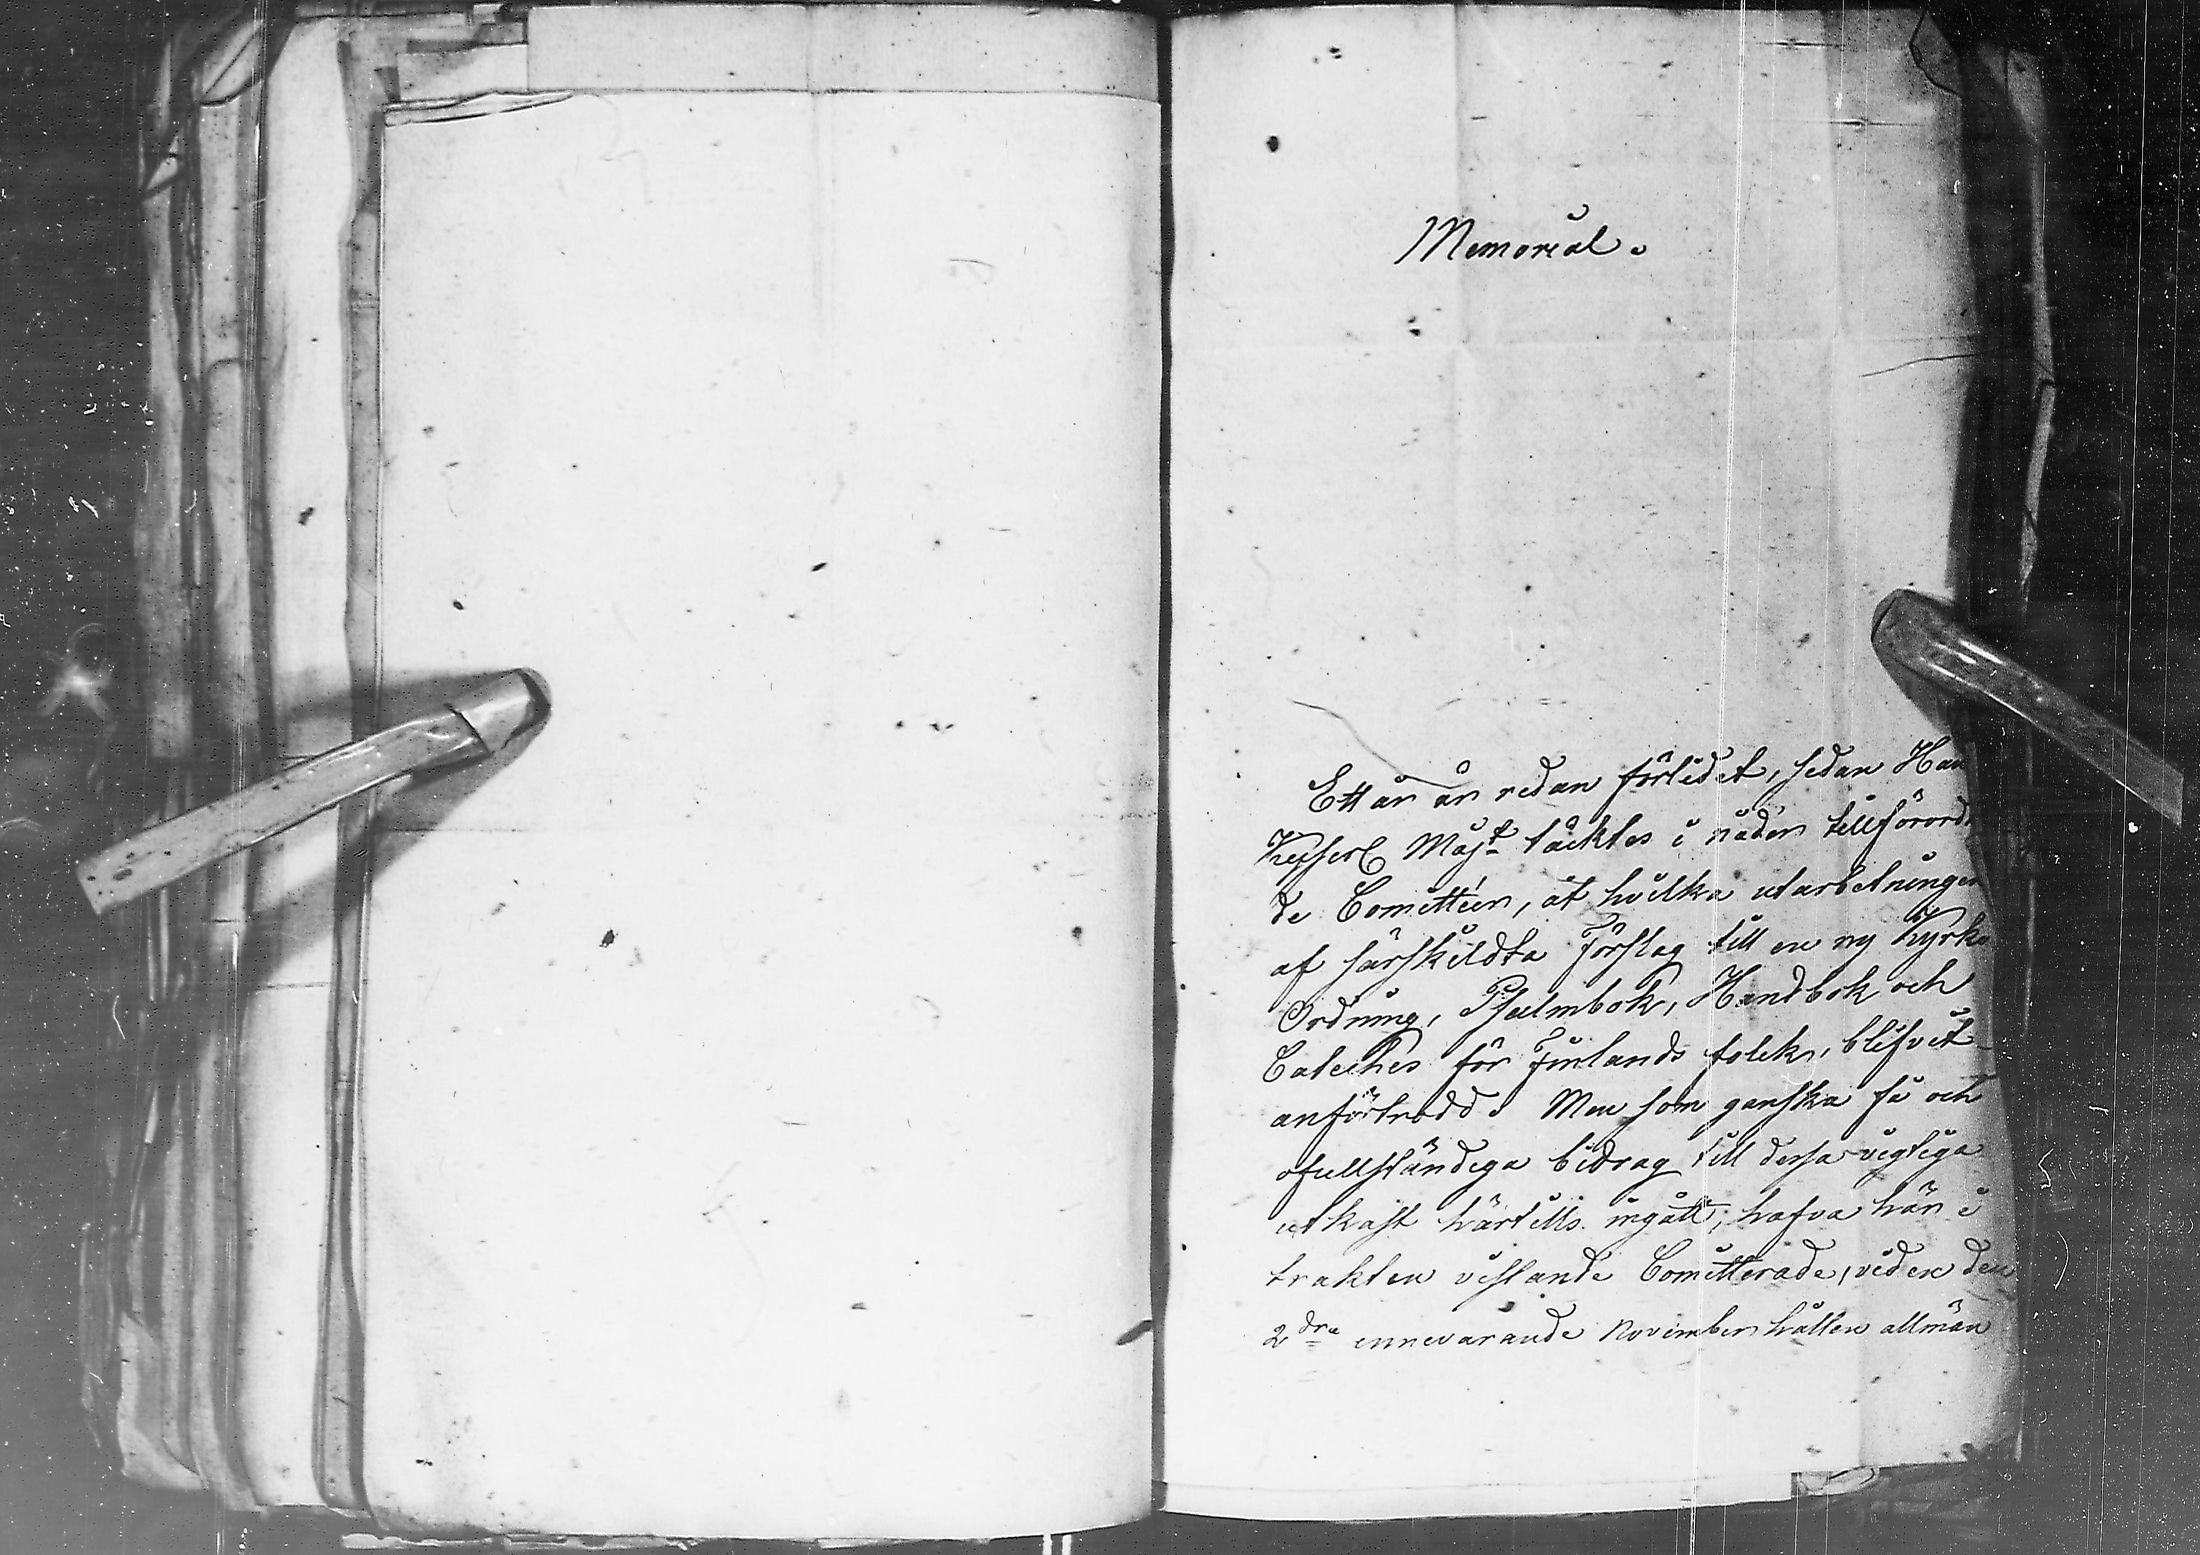 Memorial.
Ett år är redan förlidet, sedan Han
Kejserl Majt täcktes i nåder tillförord
de Comitteer, åt hvilka utarbetningen
af särskildta Förslag till en ny Kyrko
Ordning, Psalmbok, Handbok och
Cateches för Finlands folck, blifvit
anförtrodd. Men som ganska få och
ofullständiga bidrag till dessa vigtiga
utkast härtills ingått, hafva här i
trakten vistande Comitterade, vid en den
2dra innevarande November hållen allmän